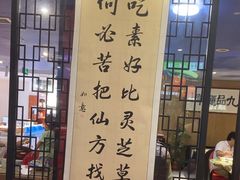 吃素好比灵芝草
何必苦把仙方找
如意